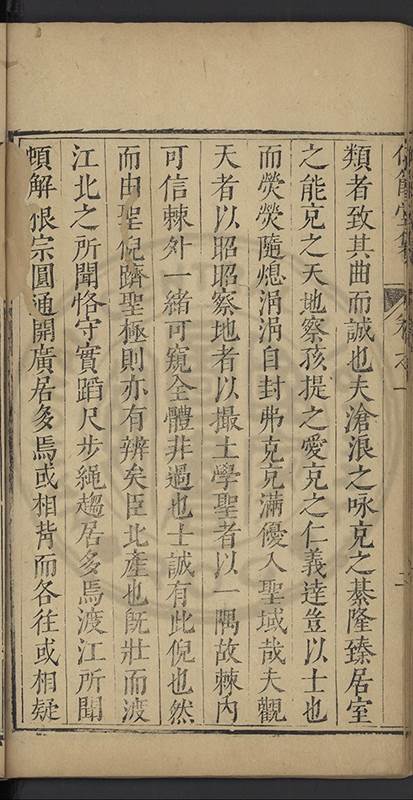 類者致其曲而誠也夫滄浪之咏克之綦隆臻居室
之能克之天地察孩提之愛克之仁義達豈以士也
而熒熒隨熄涓涓自封弗克克滿優入聖域哉夫觀
天者以昭昭察地者以撮土學聖者以一隅故棘內
可信棘外一緒可窺全體非過也士誠有此倪也然
而由聖倪躋聖極則亦有辨矣臣北產也旣壯而渡
江北之所聞恪守實蹈尺步繩趨居多焉渡江所聞
頓解恨宗圓通開廣居多焉或相背而各往或相疑